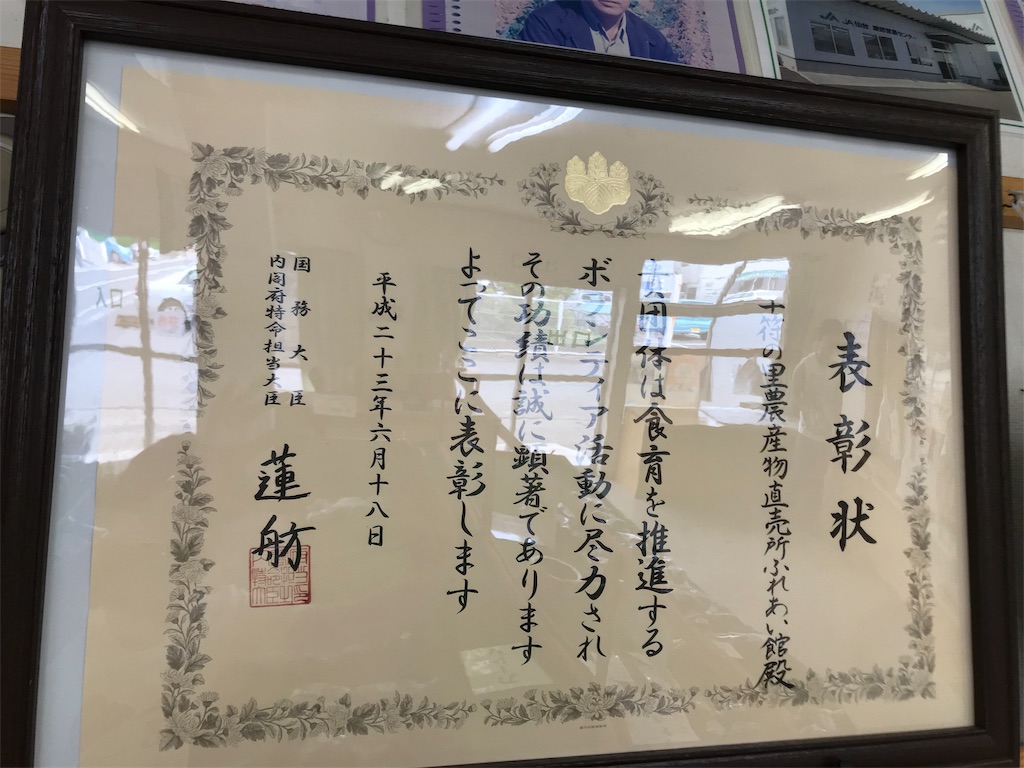 表彰状
十符の里農産物直売所ふれあい館殿
貴団体は食育を推進する
ボランティア活動に尽力され
その功績は誠に顕著であります
よってここに表彰します
平成二十三年六月十八日
国務大臣
内閣府特命担当大臣
蓮舫
入口